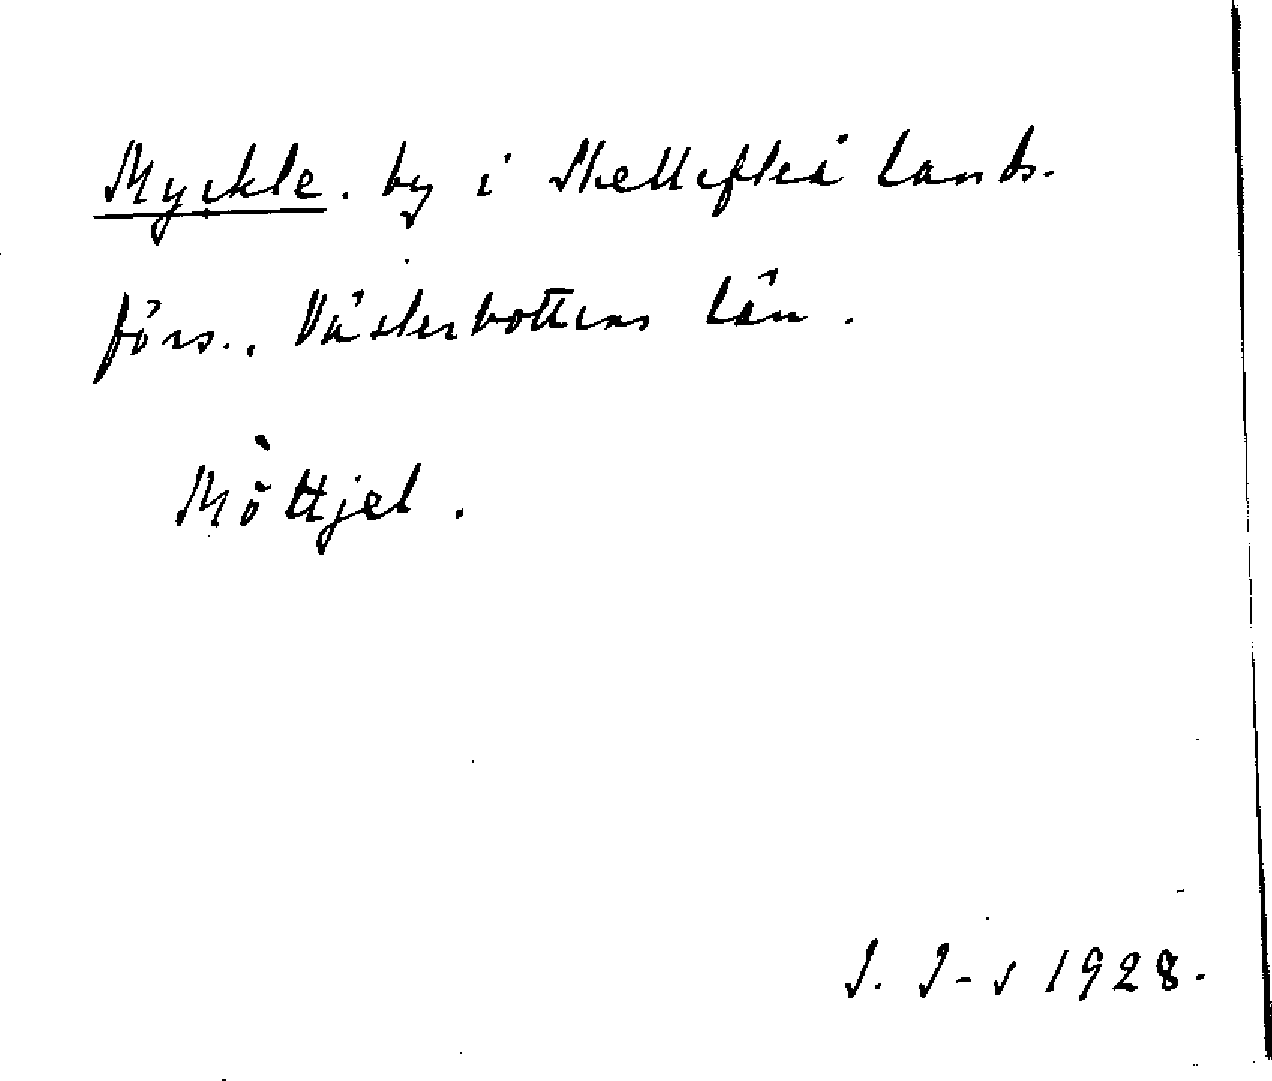 Myckle. by i Skellefteå lands-
förs., Västerbottens län.
Mö̀ttjel.
J. J-s 1928.